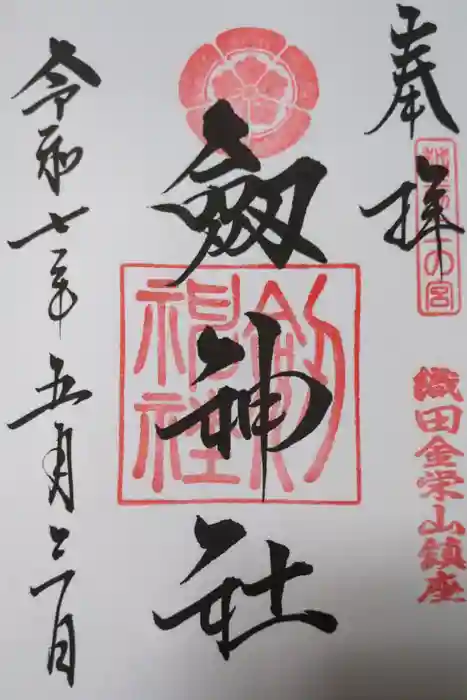 奉拝
越前二の宮
織田金栄山鎮座
劔神社
令和七年五月三日